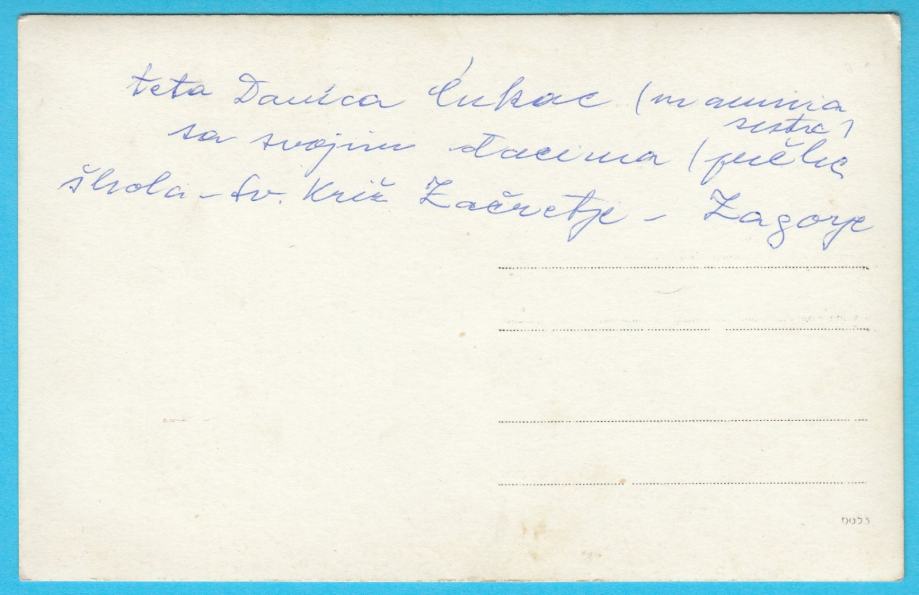 teta Danica Čukac (mamina
sestra)
sa svojim đacima (pučka
škola - Sv. Križ Začretje - Zagorje